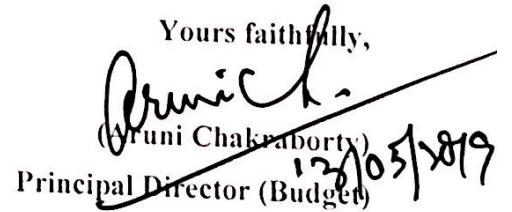 Yours faithfully,
Arunich.
(Aruni Chakraborty)
13/05/2019
Principal Director (Budget)